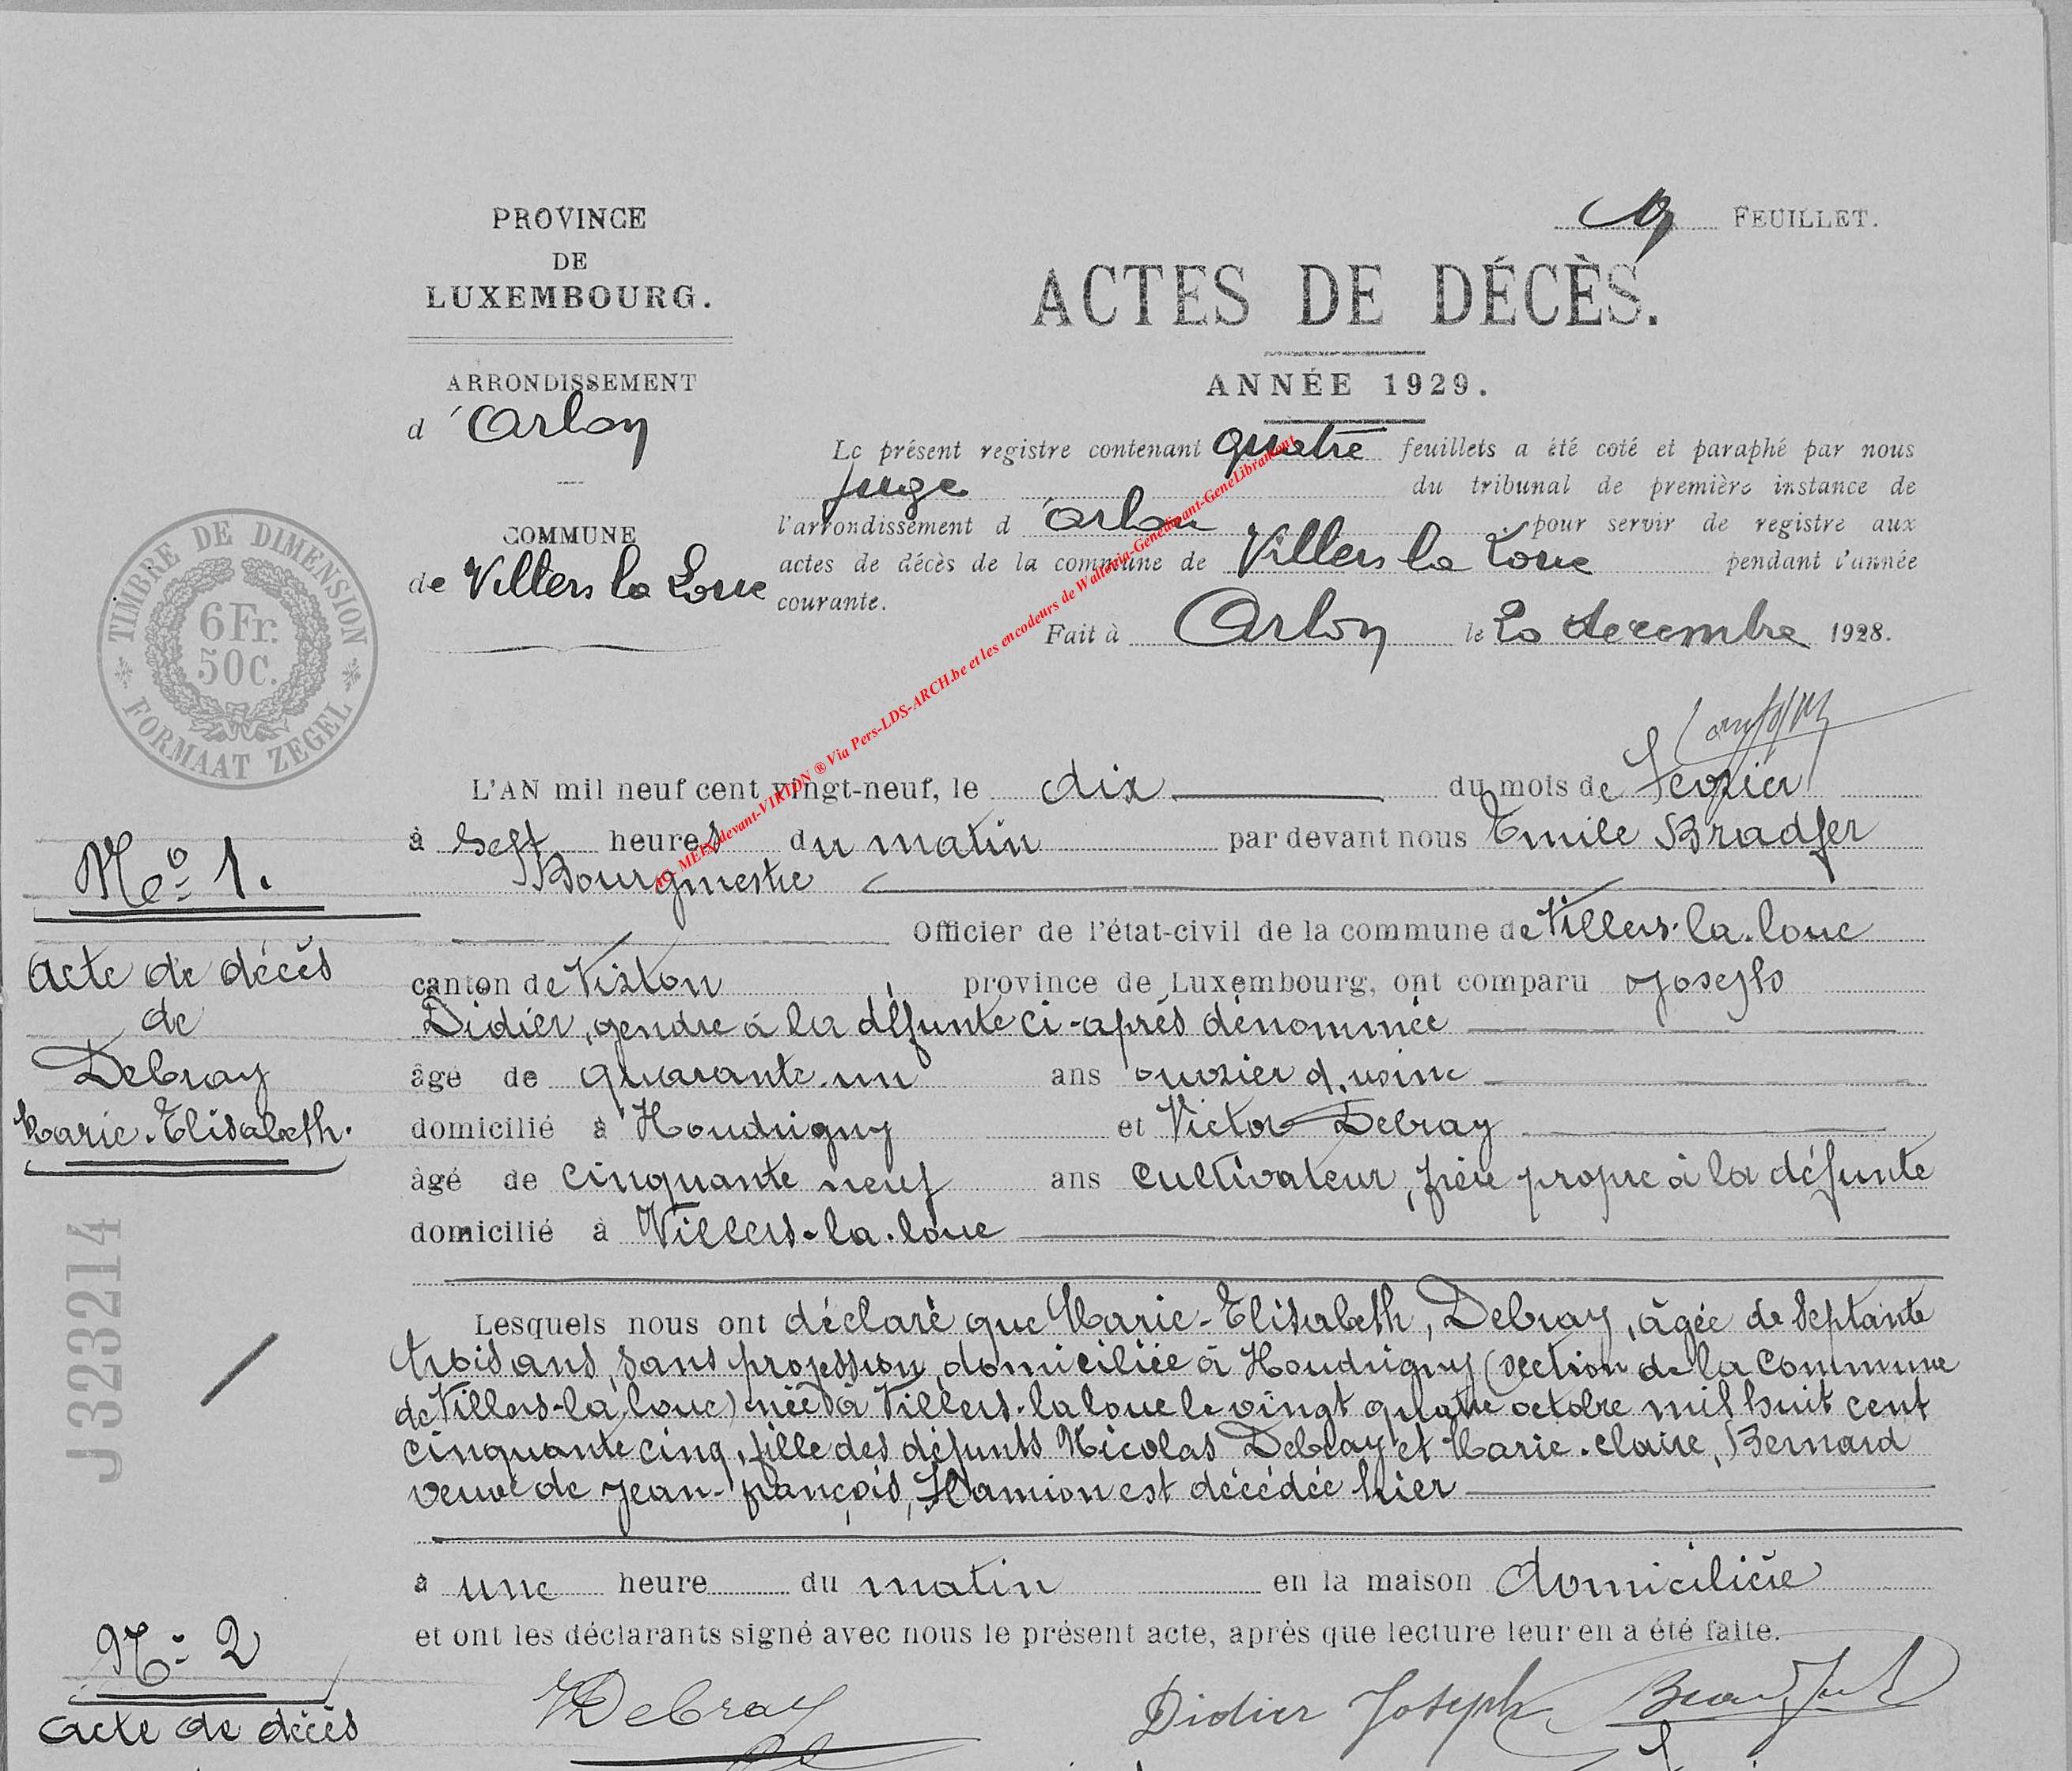 PROVINCE
DE
LUXEMBOURG.
ARRONDISSEMENT
d'Arlon
COMMUNE
de Villers la Loue
FEUILLET.
ACTES DE DÉCÈS.
ANNÉE 1929.
Le présent registre contenant quatre feuillets a été coté et paraphé par nous
juge du tribunal de première instance de
l'arrondissement d'Arlon pour servir de registre aux
actes de décès de la commune de Villers la Loue pendant l'année
courante.
Fait à Arlon le 20 decembre 1928.
TIMBRE DE DIMENSION
6 Fr.
50 c.
FORMAAT ZEGEL
AC MEIX-devant-VIRTON ® Via Pers-LDS-ARCH.be et les encodeurs de Wallonia-Genedinant-GeneLibramont
L'AN mil neuf cent vingt-neuf, le dix du mois de Fevrier
à sept heures du matin par devant nous Emile Bradfer
Bourgmestre
Officier de l'état-civil de la commune de Villers-la-loue
canton de Virton, province de Luxembourg, ont comparu Joseph
Didier, gendre à la défunte ci-après dénommée
âgé de quarante-un ans ouvrier d'usine
domicilié à Houdrigny et Victor Debray
âgé de cinquante neuf ans cultivateur, frère propre à la défunte
domicilié à Villers-la-loue
Lesquels nous ont déclaré que Marie-Elisabeth, Debray, âgée de septante
trois ans, sans profession, domiciliée à Houdrigny (section de la commune
de Villers-la-loue) née à Villers-la loue le vingt quatre octobre mil huit cent
cinquante cinq, fille des défunts Nicolas Debray et Marie-claire, Bernard
veuve de Jean-françois, Hamion est décédée hier
à une heure du matin en la maison domiciliére
et ont les déclarants signé avec nous le présent acte, après que lecture leur en a été faite.
VDebray Didier Joseph Bradfer
No 1.
Acte de décès
de
Debray
Marie-Elisabeth.
J 323214
No 2
Acte de décès